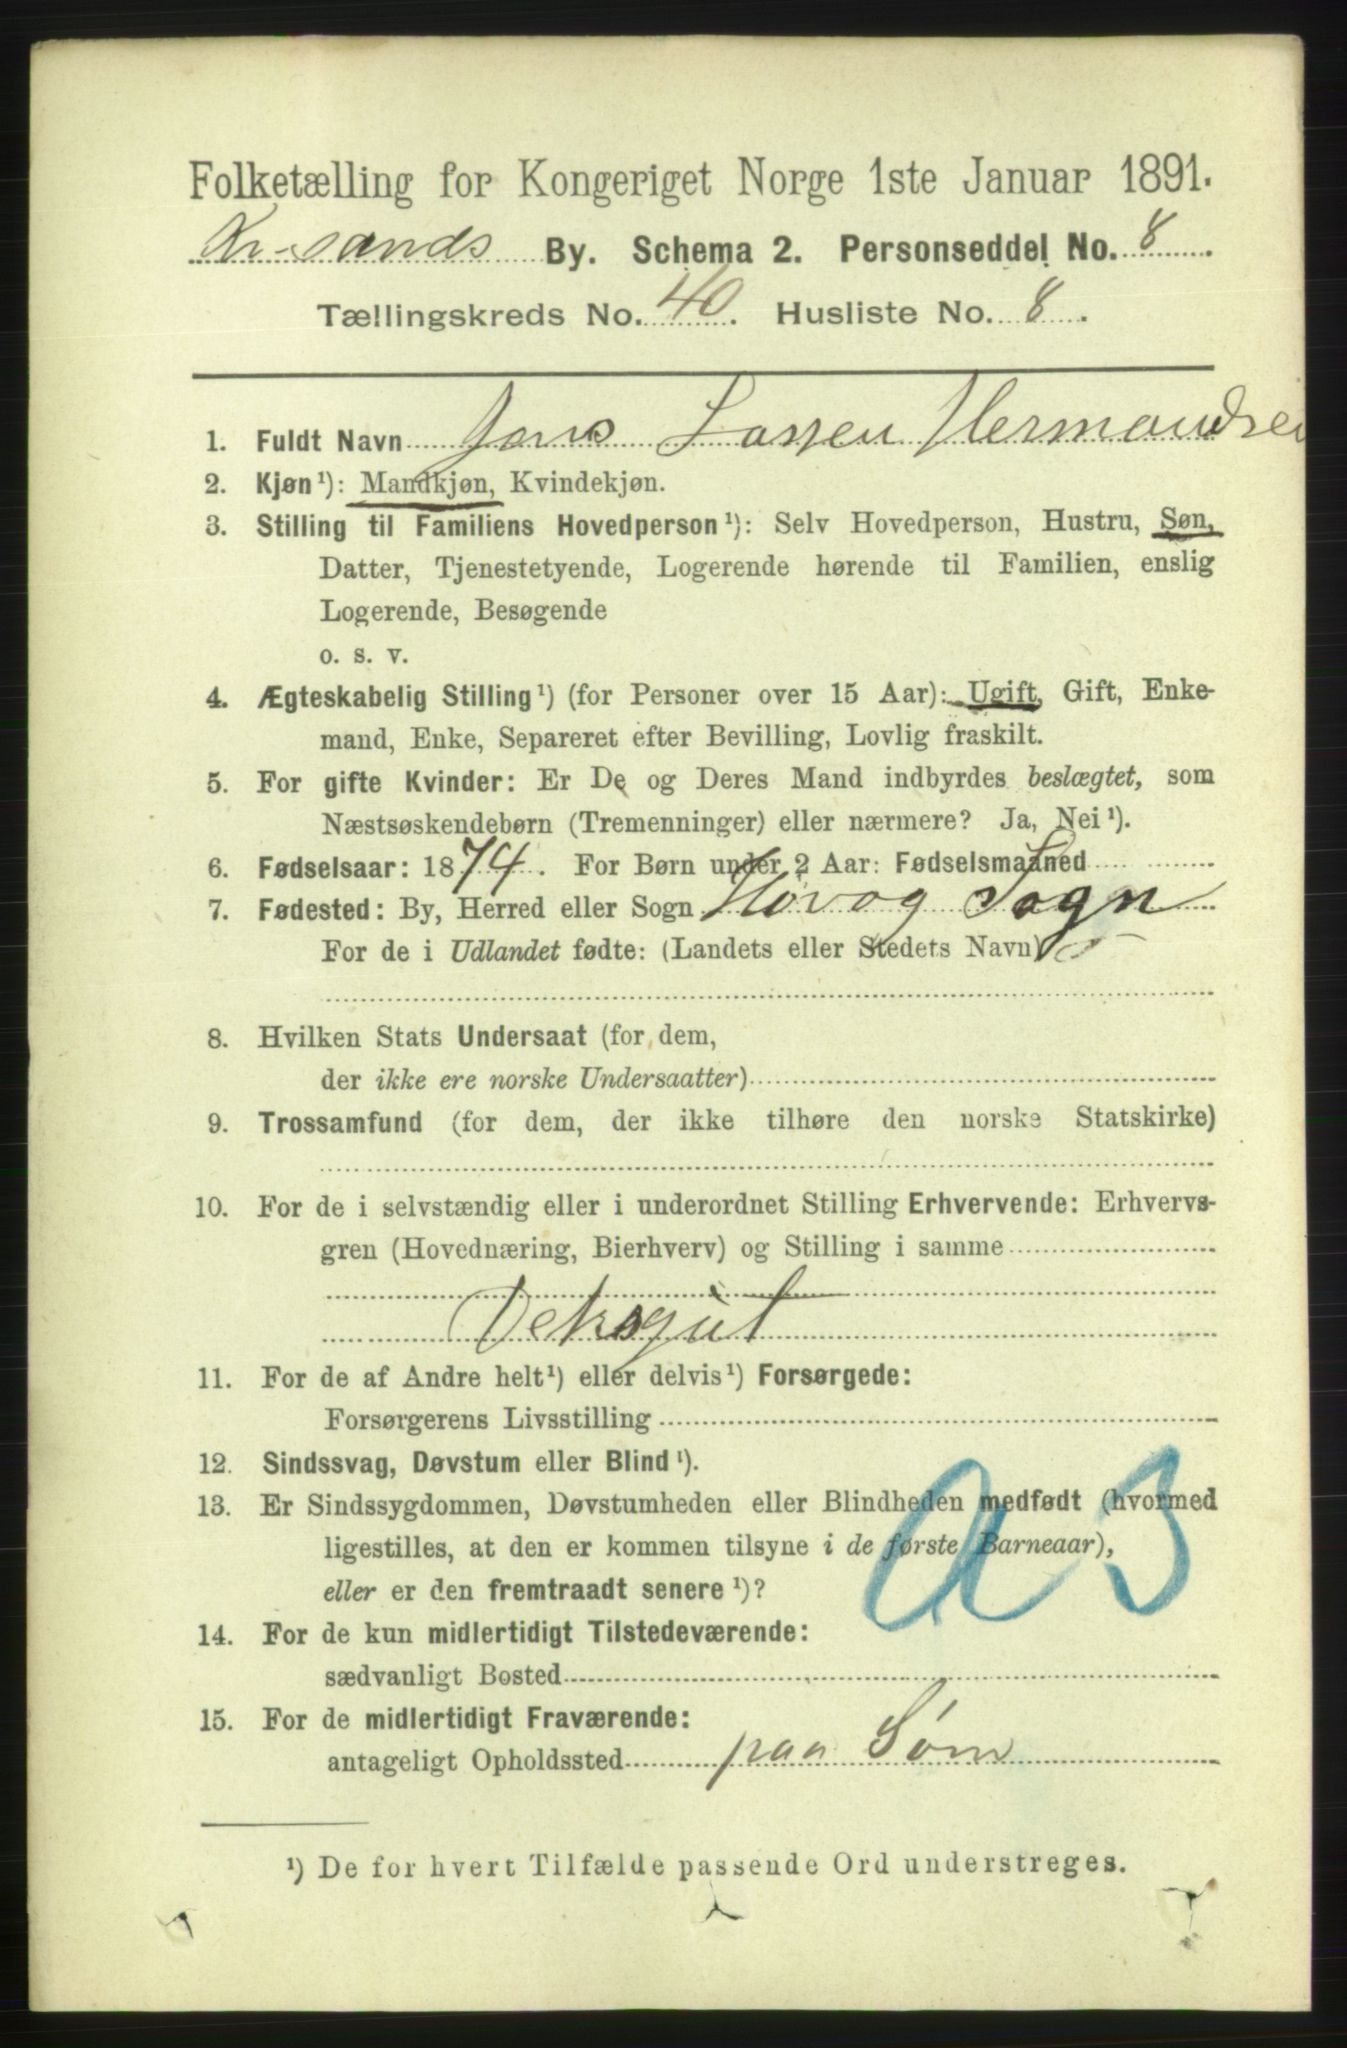 Folketælling for Kongeriget Norge 1ste Januar 1891.
Kr-sands By. Schema 2. Personseddel No. 8.
Tællingskreds No. 40. Husliste No. 8.
1. Fuldt Navn Jens Lassen Hermandsen
2. Kjøn¹): Mandkjøn, Kvindekjøn.
3. Stilling til Familiens Hovedperson¹): Selv Hovedperson, Hustru, Søn,
Datter, Tjenestetyende, Logerende hørende til Familien, enslig
Logerende, Besøgende
o. s. v.
4. Ægteskabelig Stilling¹) (for Personer over 15 Aar): Ugift, Gift, Enke-
mand, Enke, Separeret efter Bevilling, Lovlig fraskilt.
5. For gifte Kvinder: Er De og Deres Mand indbyrdes beslægtet, som
Næstsøskendebørn (Tremenninger) eller nærmere? Ja, Nei¹).
6. Fødselsaar: 1874. For Børn under 2 Aar: Fødselsmaaned
7. Fødested: By, Herred eller Sogn Høvog Sogn
For de i Udlandet fødte: (Landets eller Stedets Navn)
8. Hvilken Stats Undersaat (for dem,
der ikke ere norske Undersaatter)
9. Trossamfund (for dem, der ikke tilhøre den norske Statskirke)
10. For de i selvstændig eller i underordnet Stilling Erhvervende: Erhvervs-
gren (Hovednæring, Bierhverv) og Stilling i samme
Deksgut
11. For de af Andre helt¹) eller delvis¹) Forsørgede:
Forsørgerens Livsstilling
12. Sindssvag, Døvstum eller Blind¹).
13. Er Sindssygdommen, Døvstumheden eller Blindheden medfødt (hvormed
ligestilles, at den er kommen tilsyne i de første Barneaar),
eller er den fremtraadt senere¹)?
14. For de kun midlertidigt Tilstedeværende:
sædvanligt Bosted
15. For de midlertidigt Fraværende:
antageligt Opholdssted paa Søm
¹) De for hvert Tilfælde passende Ord understreges.